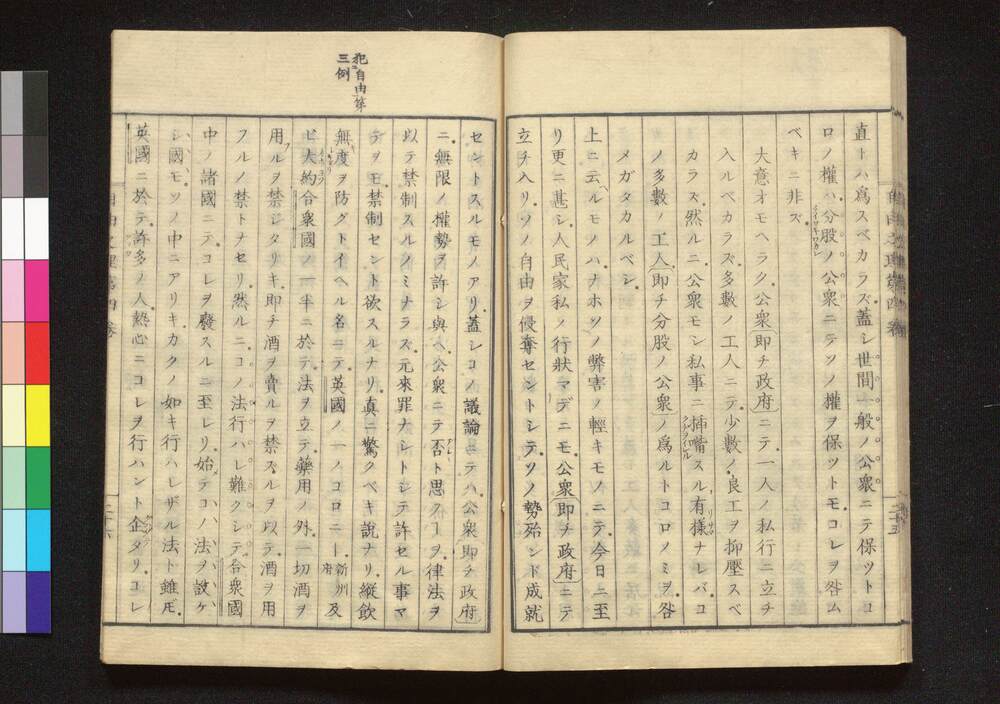 直トハ為スベカラズ蓋シ世間一般ノ公衆ニテ保ツトコ
ロノ權ハ分股ノ公衆ニテソノ權ヲ保ツトモコレヲ咎ム
ベキニ非ズ
大意オモヘラク公衆即チ政府ニテ一人ノ私行ニ立チ
入ルベカラズ多數ノ工人ニテ少數ノ良工ヲ抑壓スベ
カラズ然ルニ公衆モシ私事ニ插嘴スル有様ナレバコ
ノ多數ノ工人即チ分股ノ公衆ノ為ルトコロノミヲ咎
メガタカルベシ
上ニ云ルモノハナホソノ弊害ノ輕キモノニテ今日ニ至
リ更ニ甚シ人民家私ノ行狀マデニモ公衆即チ政府ニテ
立チ入リソノ自由ヲ侵奪セントシテソノ勢殆ンド成就
犯自由第
三例
セントスルモノアリ蓋シコノ議論ニテハ公衆即チ政府
ニ無限ノ權勢ヲ許シ與ヘ公衆ニテ否ト思フヿヲ律法ヲ
以テ禁制スルノミナラズ元來罪ナシトシテ許セル事マ
デヲモ禁制セント欲スルナリ真ニ驚クベキ說ナリ縱飲
無度ヲ防グトイヘル名ニテ英國ノ一ノコロニー新州府及
ビ大約合衆國ノ一半ニ於テ法ヲ立テ藥用ノ外一切酒ヲ
用ルヲ禁ジタリキ即チ酒ヲ賣ルヲ禁ズルヲ以テ酒ヲ用
フルノ禁トナセリ然ルニコノ法行ハレ難クシテ合衆國
中ノ諸國ニテコレヲ廢スルニ至レリ始テコノ法ヲ設ケ
シ國モソノ中ニアリキカクノ如キ行ハレザル法ト雖𪜈
英國ニ於テ許多ノ人熱心ニコレヲ行ハント企タリコレ